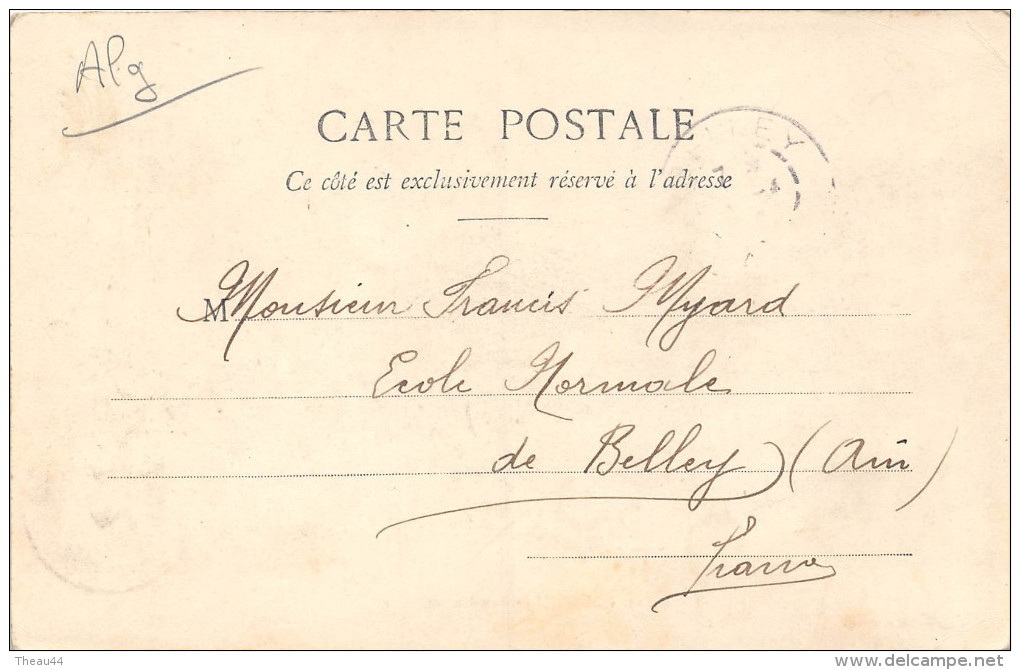 Alg
CARTE POSTALE
Ce côté est exclusivement réservé à l'adresse
M Monsieur Francis Myard
Ecole Normale
de Belley (Ain)
France
Theau44
www.delcampe.net